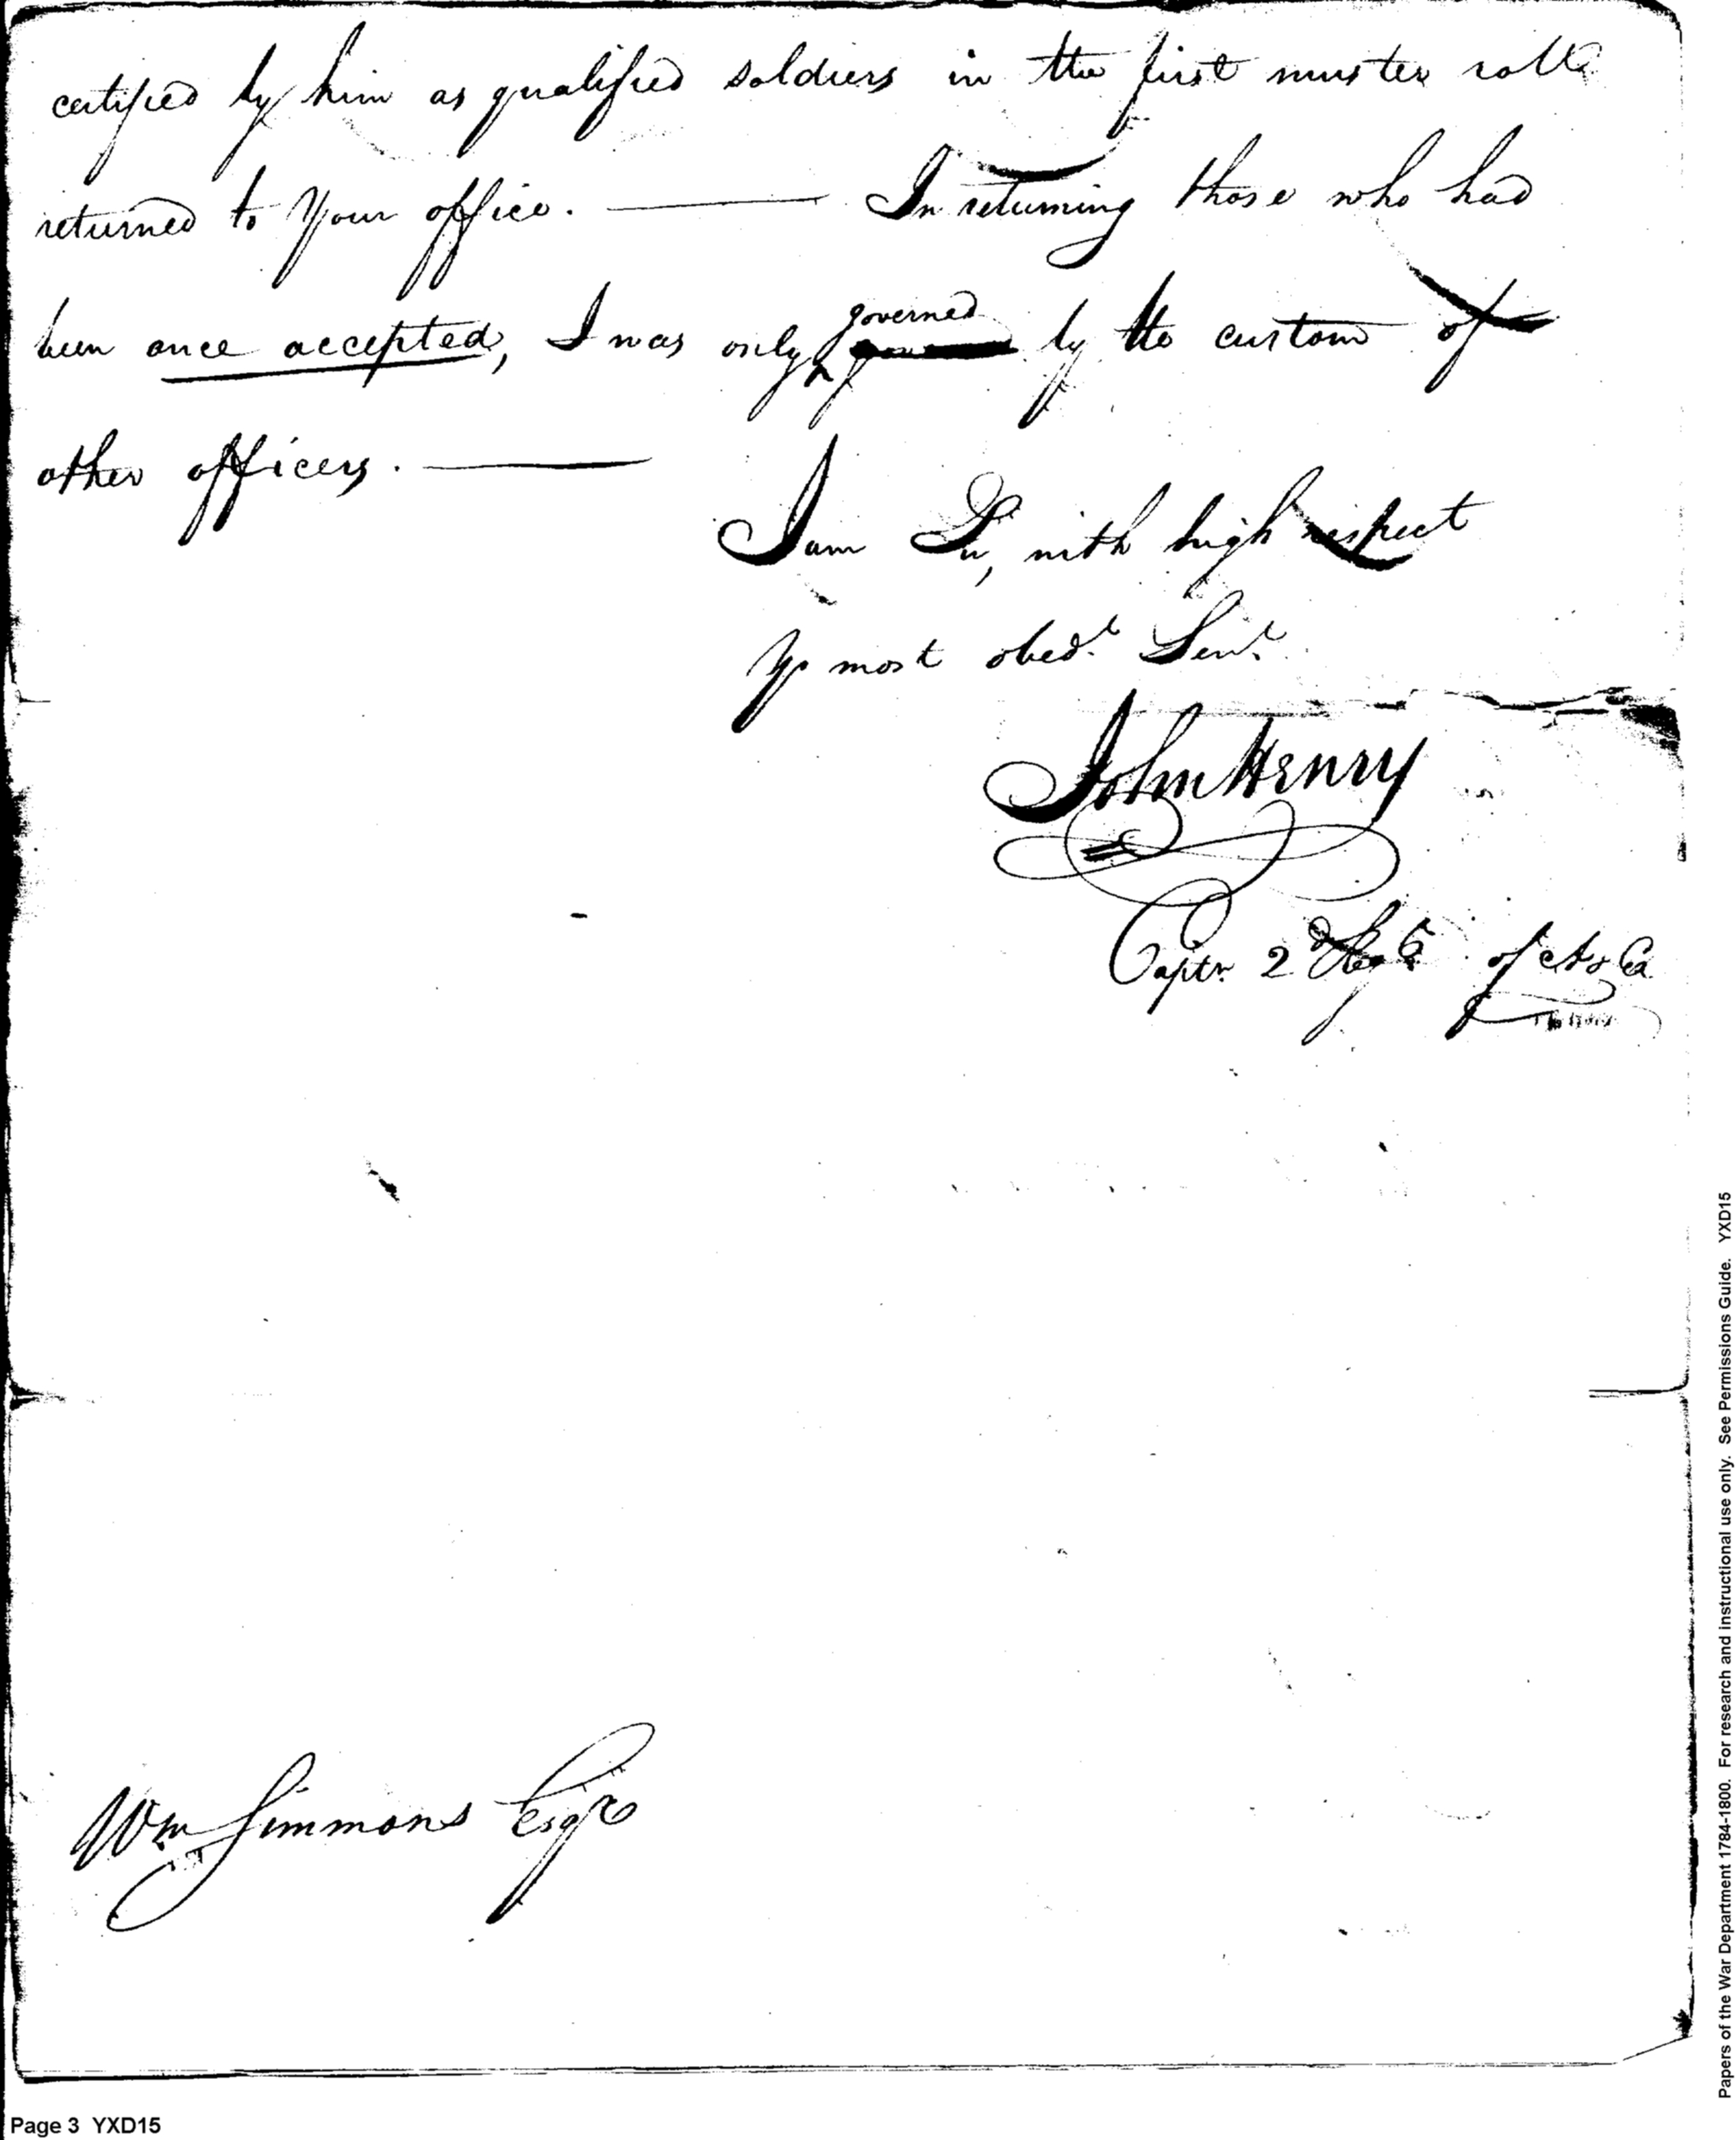 certified by him as qualified soldiers in the first muster rolls
returned to your office. — In returning those who had
been once accepted, I was only governed by the custom of
other officers. —
I am Sir, with high respect
Yr most obedt. Servt.
John Henry
Captn. 2d Regt. of A & E
Wm Simmons Esqre
Page 3 YXD15
Papers of the War Department 1784-1800. For research and instructional use only. See Permissions Guide. YXD15